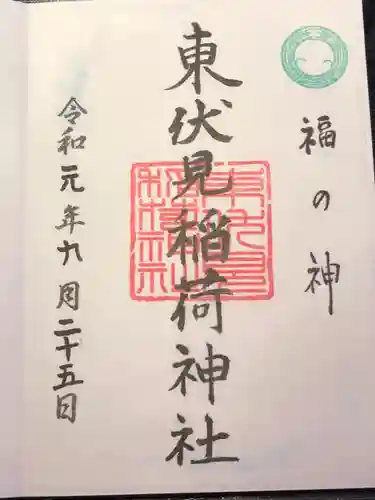 福の神
東伏見稲荷神社
令和元年九月二十五日